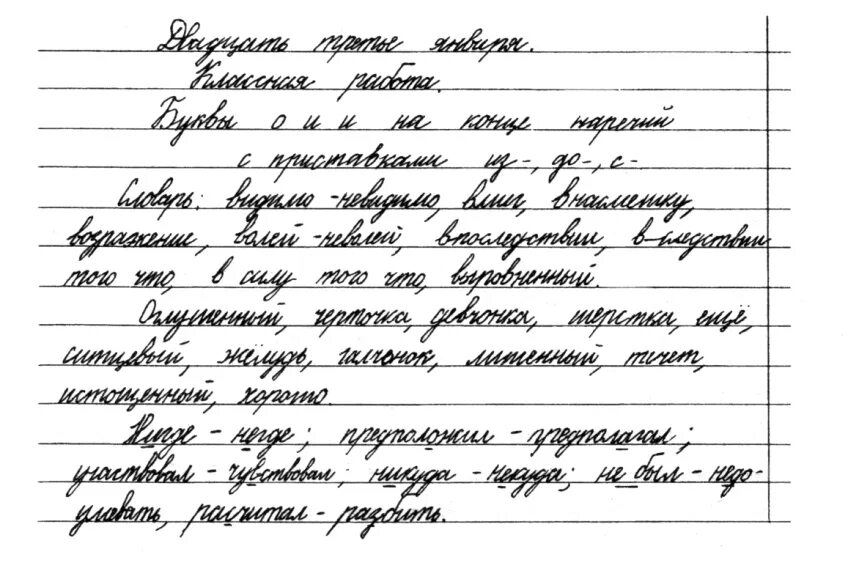 Двадцать третье января.
Классная работа.
Буквы о и и на конце наречий
с приставками из-, до-, с-
Словарь: видимо-невидимо, вмиг, внасмешку,
возражение, волей-неволей, впоследствии, в-следствии
того что, в силу того что, выровненный.
Оглушенный, черточка, девчонка, шерстка, ещё,
ситцевый, жёлудь, галченок, лишенный, течет,
истощенный, хорошо.
Нигде - негде; предположил - предполагал;
участвовал - чувствовал; никуда - некуда; не был - недо-
умевать, расчитал - разбить.